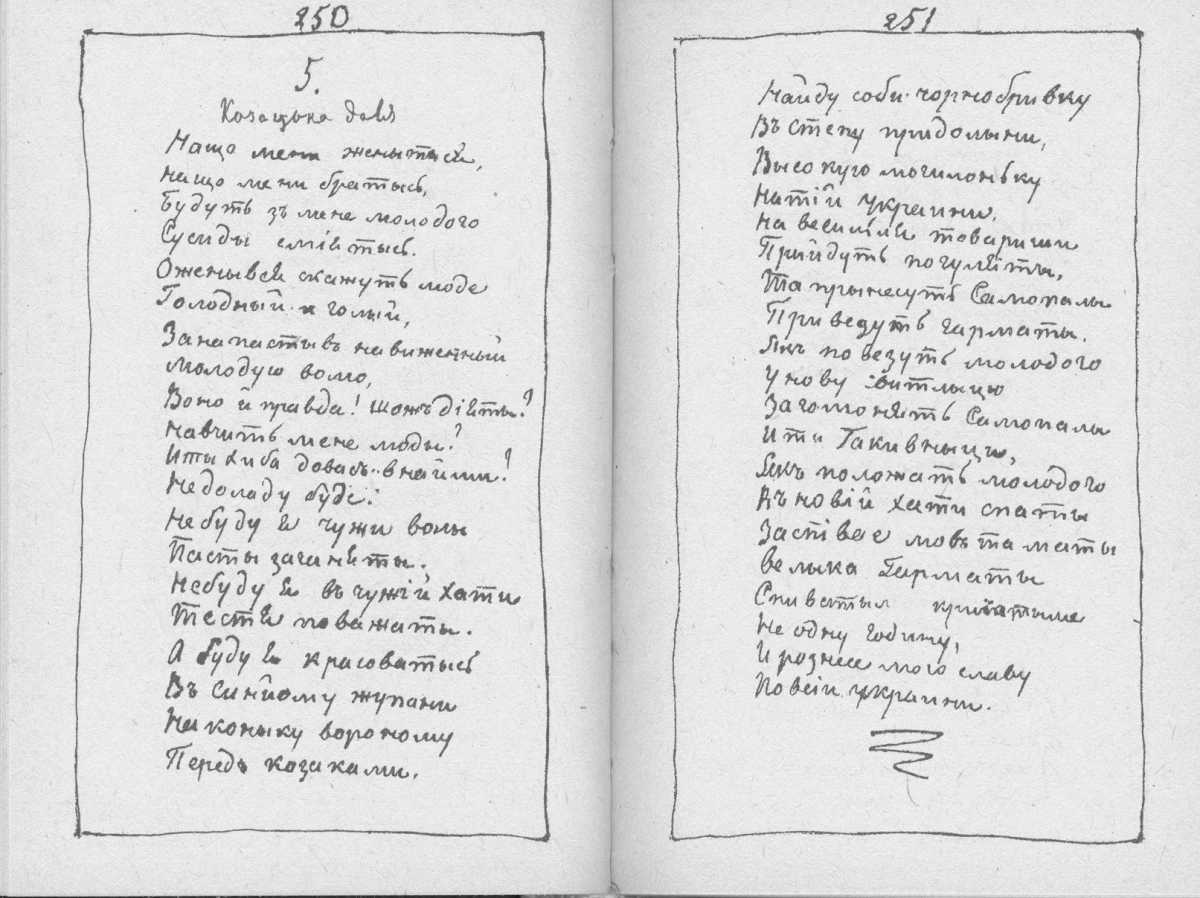 250
5.
Козацька доля
Нащо мени женытыся,
нащо мени братысь,
Будуть зъ мене молодого
Сусиды сміятысь.
Оженывся скажуть люде
Голодный и голый,
Занапастывъ навиженный
молодую волю,
Воно й правда! шожъ діяты?
навчить мене люды?
Иты хиба довасъ внайми!
Недоладу буде:
Небуду я чужи волы
Пасты заганяты.
Небуду я въ чужій хати
Тестя поважаты.
А буду я красоватысь
Въ синйому жупани
На коныку вороному
Передъ козаками.
251
Найду соби чорнобривку
Въ степу придолыни,
Высокую могилоньку
натій украини.
на весиллля товариши
Прийдуть погуляты,
Та прынесуть Самопалы
Приведуть гарматы.
Якъ повезуть молодого
У нову свитлыцю
Загомонять Самопалы
И ти Гакивныци,
Якъ положать молодого
Въ новій хати спаты
Заспівае мовъ та маты
велыка Гарматы
Спиватыме крычатыме
Не одну годину,
И рознесе мого славу
По всій украини.